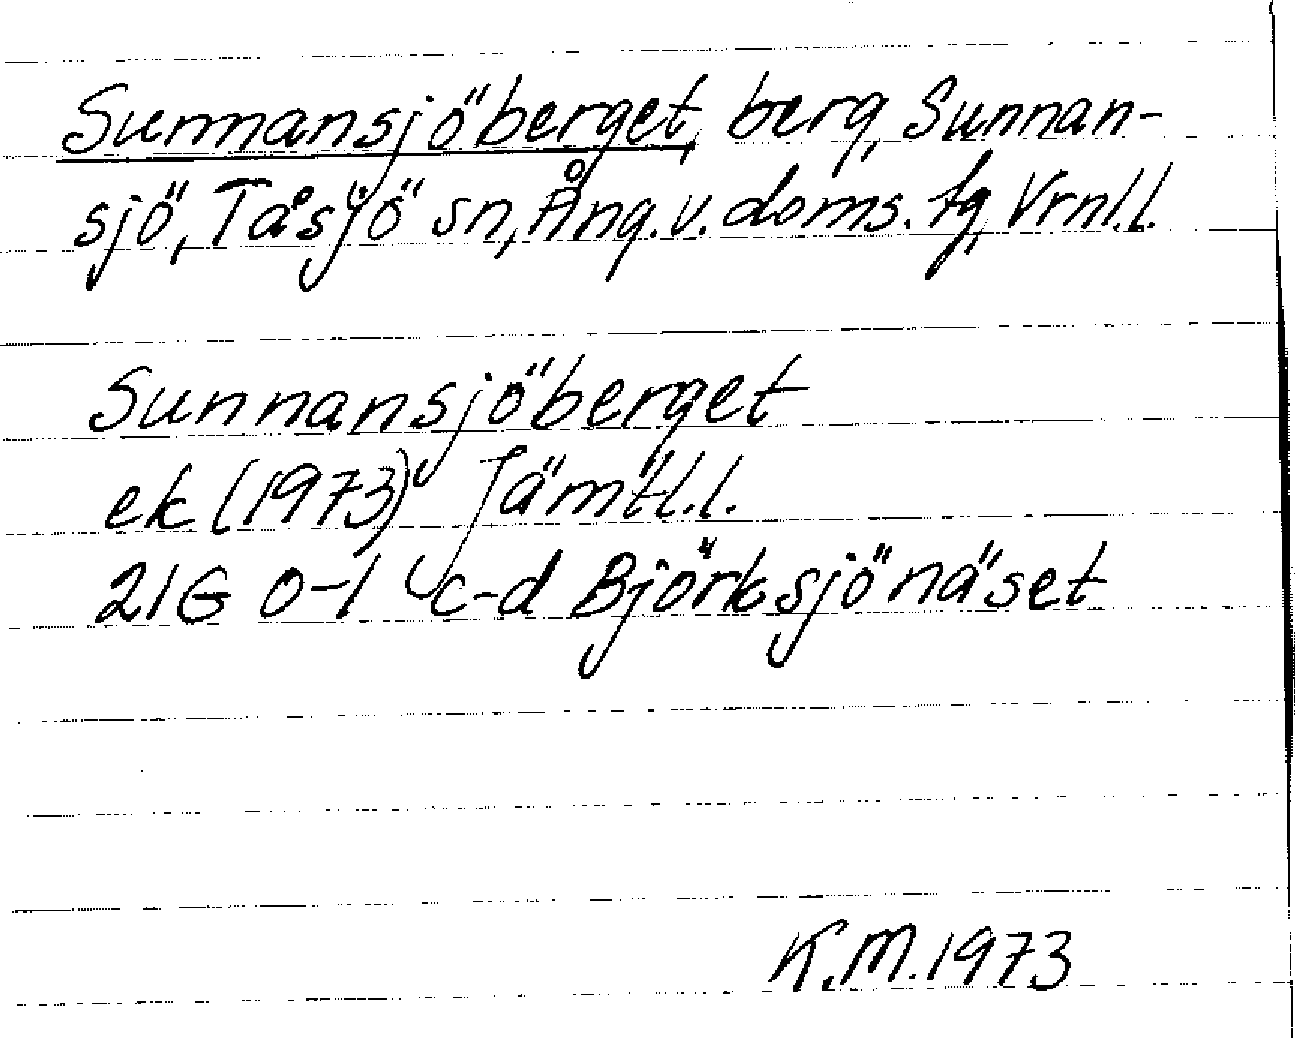 Sunnansjöberget, berg, Sunnan-
sjö, Tåsjö sn, Ång. v. doms. tg, Vrnl.l.
Sunnansjöberget
ek (1973) Jämtl.l.
21G 0-1 c-d Björksjönäset
K.M. 1973